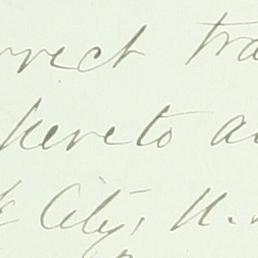 rrect tra
hereto a
k City, N.